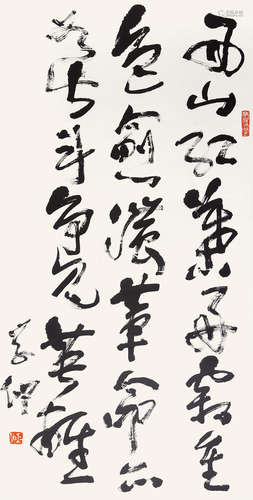 西山红葉好霜重
色愈浓革命亦
如此斗争见英雄
学仲